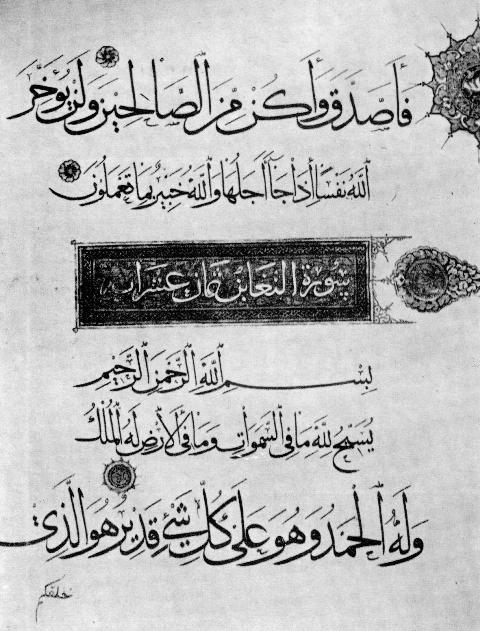 فَأَصَّدَّقَ وَأَكُنْ مِنَ الصَّالِحِينَ وَلَنْ يُؤَخِّرَ
اللَّهُ نَفْسًا إِذَا جَاءَ أَجَلُهَا وَاللَّهُ خَبِيرٌ بِمَا تَعْمَلُونَ
سورة التغابن ثمان عشر اية
بِسْمِ اللَّهِ الرَّحْمَٰنِ الرَّحِيمِ
يُسَبِّحُ لِلَّهِ مَا فِي السَّمٰوَاتِ وَمَا فِي الْأَرْضِ لَهُ الْمُلْكُ
وَلَهُ الْحَمْدُ وَهُوَ عَلَىٰ كُلِّ شَيْءٍ قَدِيرٌ هُوَ الَّذِي
خلقكم